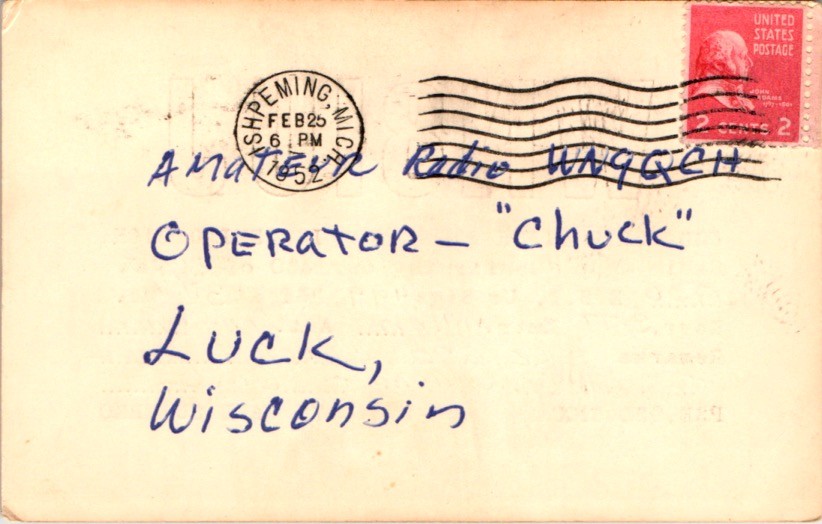 UNITED
STATES
POSTAGE
JOHN
ADAMS
2 CENTS 2
ISHPEMING, MICH.
FEB 25
6 PM
1952
AMATEUR Radio WN9QCH
OPERATOR — "Chuck"
LUCK,
Wisconsin